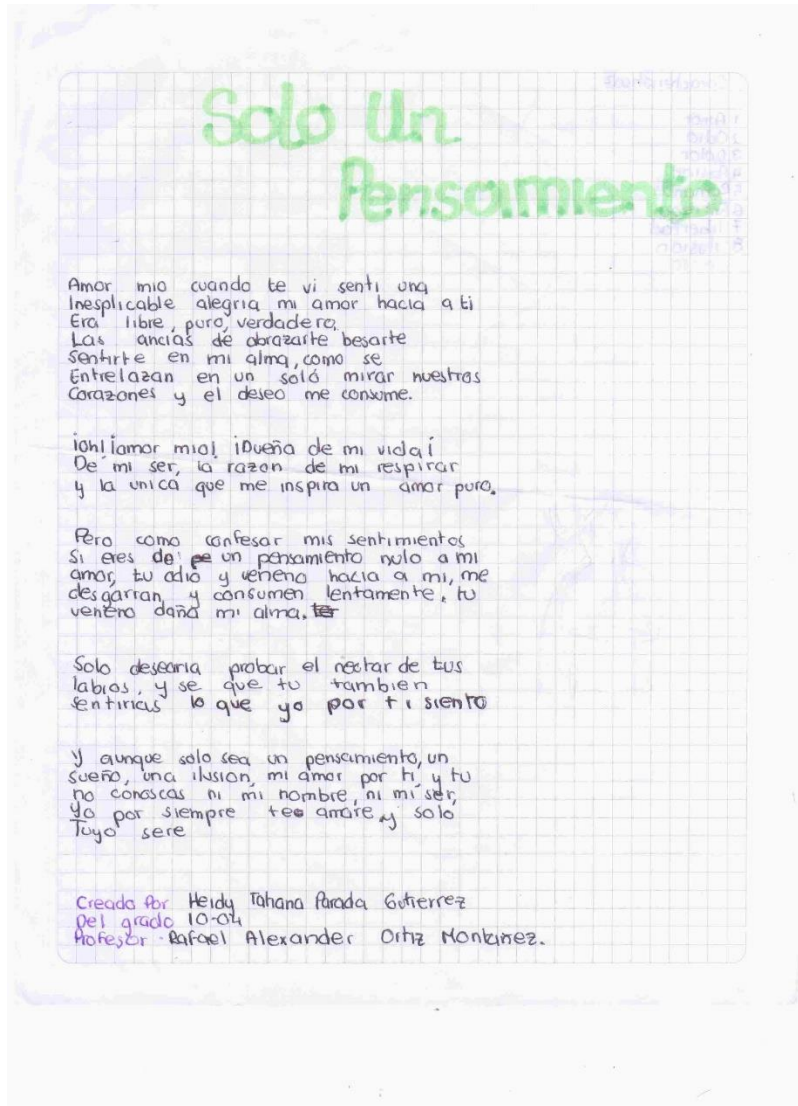 Solo Un
Pensamiento
Amor mio cuando te vi senti una
Inesplicable alegria mi amor hacia a ti
Era libre, puro, verdadero,
Las ancias de abrazarte besarte
Sentirte en mi alma, como se
Entrelazan en un soló mirar nuestros
Corazones y el deseo me consume.
¡Oh! ¡amor mio! ¡Dueña de mi vida¡
De mi ser, la razon de mi respirar
y la unica que me inspira un amor puro.
Pero como confesar mis sentimientos
Si eres de un pensamiento nulo a mi
amor, tu odio y veneno hacia a mi, me
desgarran y consumen lentamente, tu
veneno daña mi alma.
Solo desearia probar el nectar de tus
labios, y se que tu tambien
sentirias lo que yo por ti siento
Y aunque solo sea un pensamiento, un
sueño, una ilusion, mi amor por ti, y tu
no conoscas ni mi nombre, ni mi ser,
Yo por siempre te amare, y solo
Tuyo sere
Creado Por Heidy Tahana Parada Gutierrez
Del grado 10-04
Profesor Rafael Alexander Ortiz Montañez.